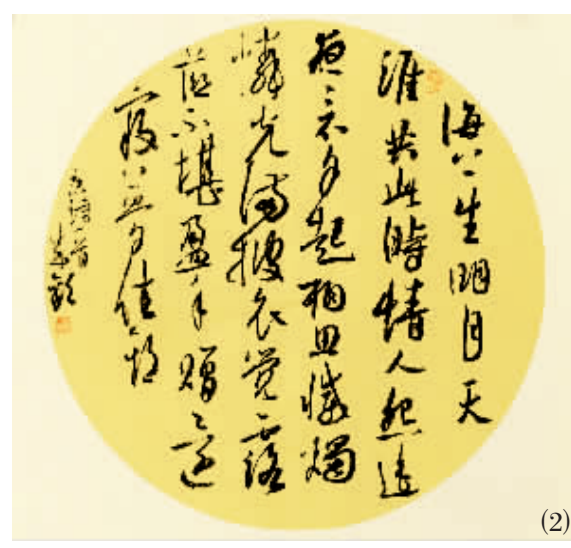 海上生明月天
涯共此時情人怨遥
夜竟夕起相思滅燭
憐光滿披衣覺露
滋不堪盈手贈還
寢夢佳期
唐詩一首
(2)